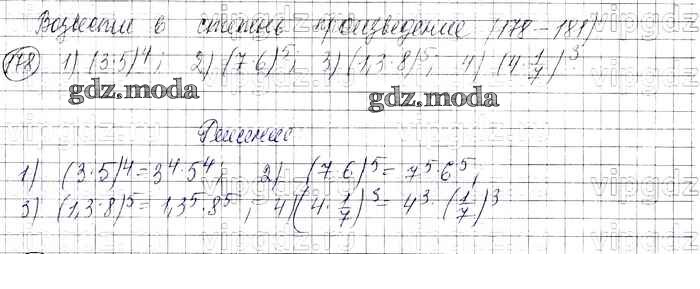 Возвести в степень произведение (178-181)
178 1) (3·5)⁴; 2) (7·6)⁵; 3) (1,3·8)⁵; 4) (4·1/7)³
gdz.moda gdz.moda
Решение
1) (3·5)⁴=3⁴·5⁴; 2) (7·6)⁵=7⁵·6⁵;
3) (1,3·8)⁵=1,3⁵·8⁵; 4) (4·1/7)³=4³·(1/7)³